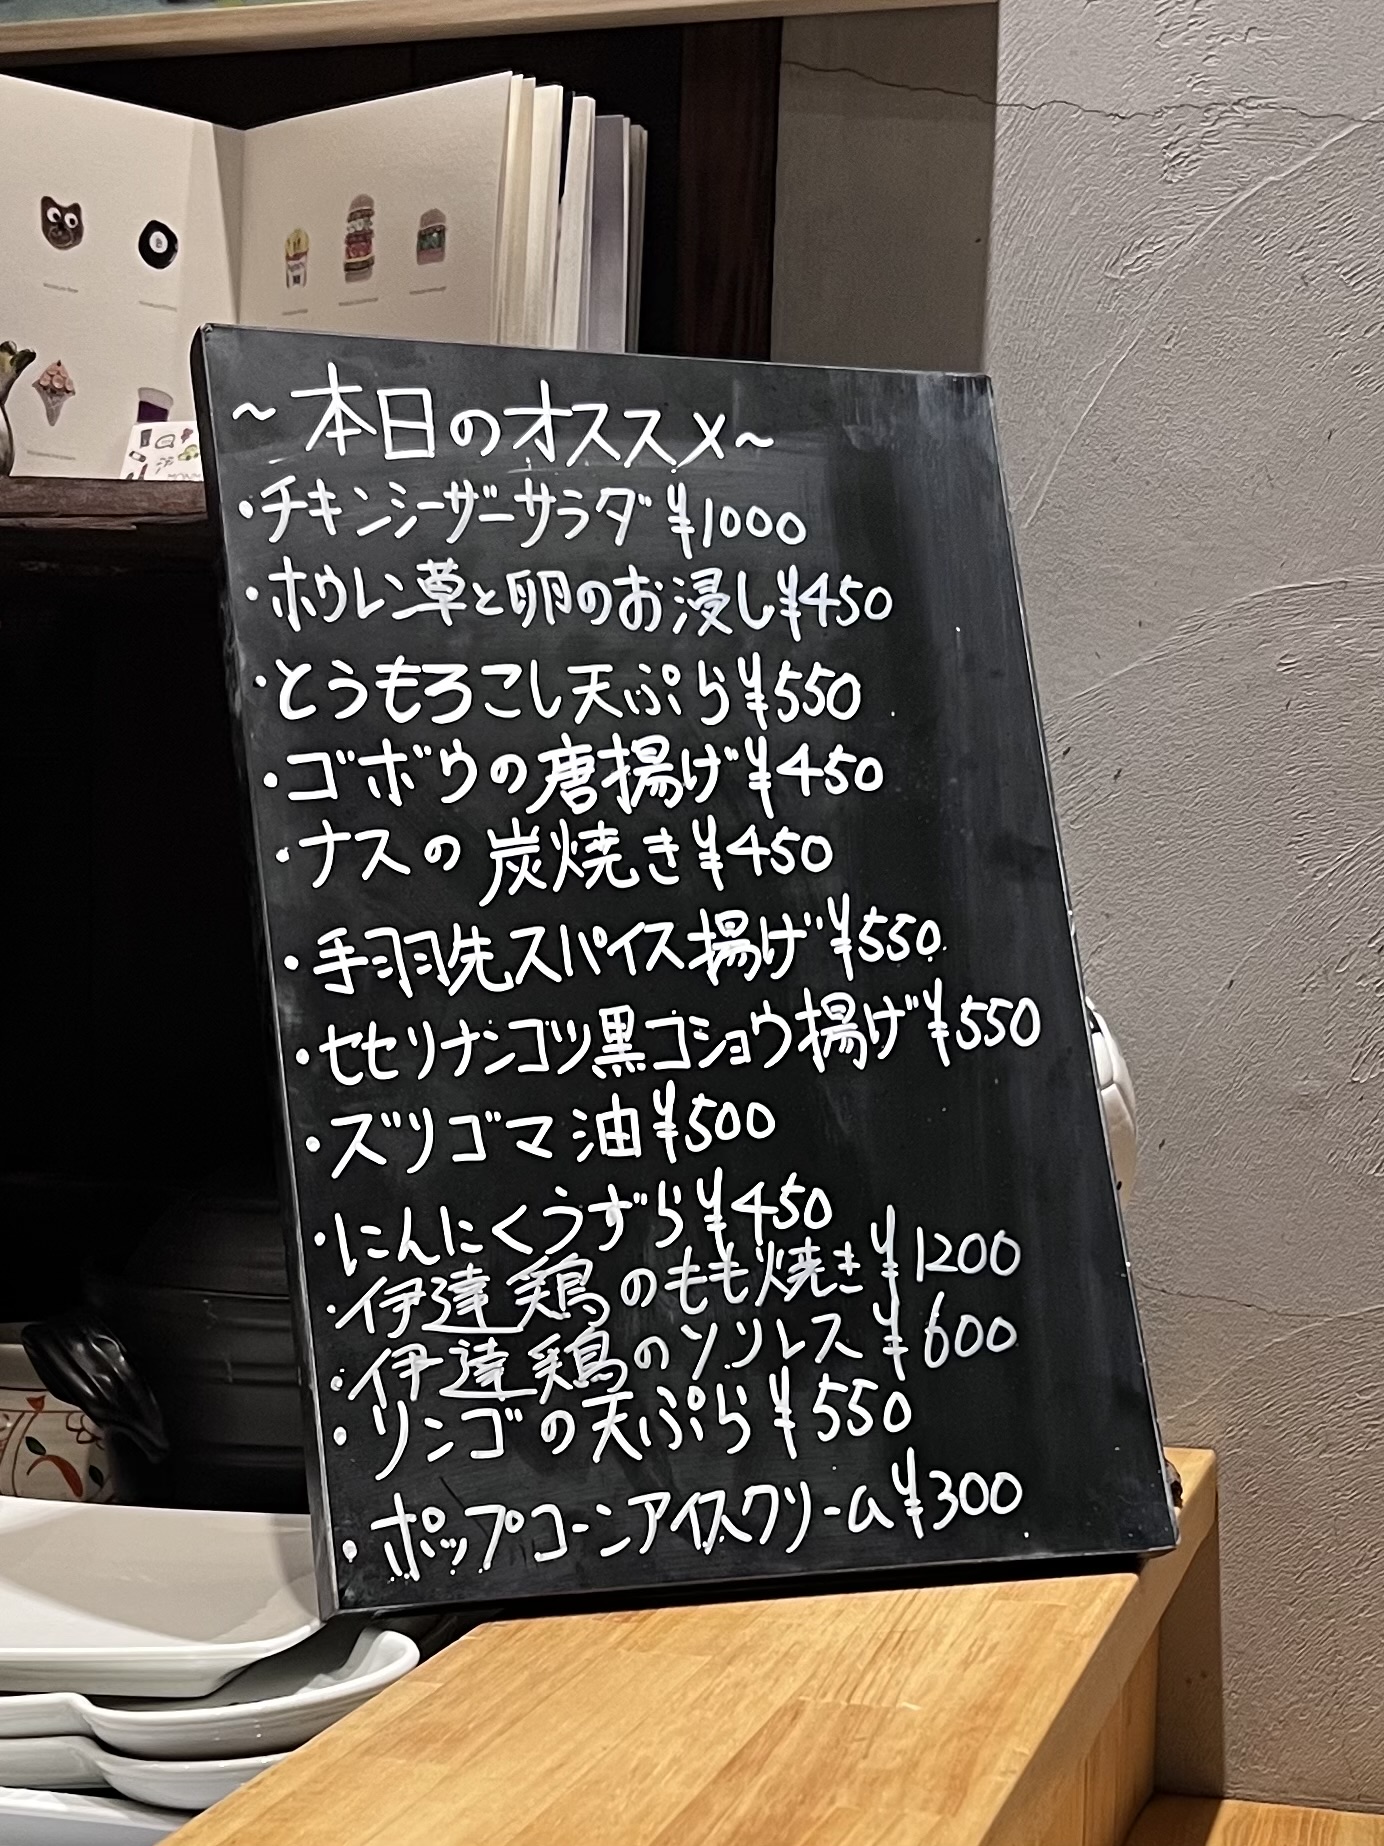 ~本日のオススメ~
・チキンシーザーサラダ ¥1000
・ホウレン草と卵のお浸し¥450
・とうもろこし天ぷら¥550
・ゴボウの唐揚げ¥450
・ナスの炭焼き¥450
・手羽先スパイス揚げ¥550
・セセリナンコツ黒コショウ揚げ¥550
・ズリゴマ油¥500
・にんにくうずら¥450
・伊達鶏のもも焼き¥1200
・伊達鶏のソリレス¥600
・リンゴの天ぷら¥550
・ポップコーンアイスクリーム¥300